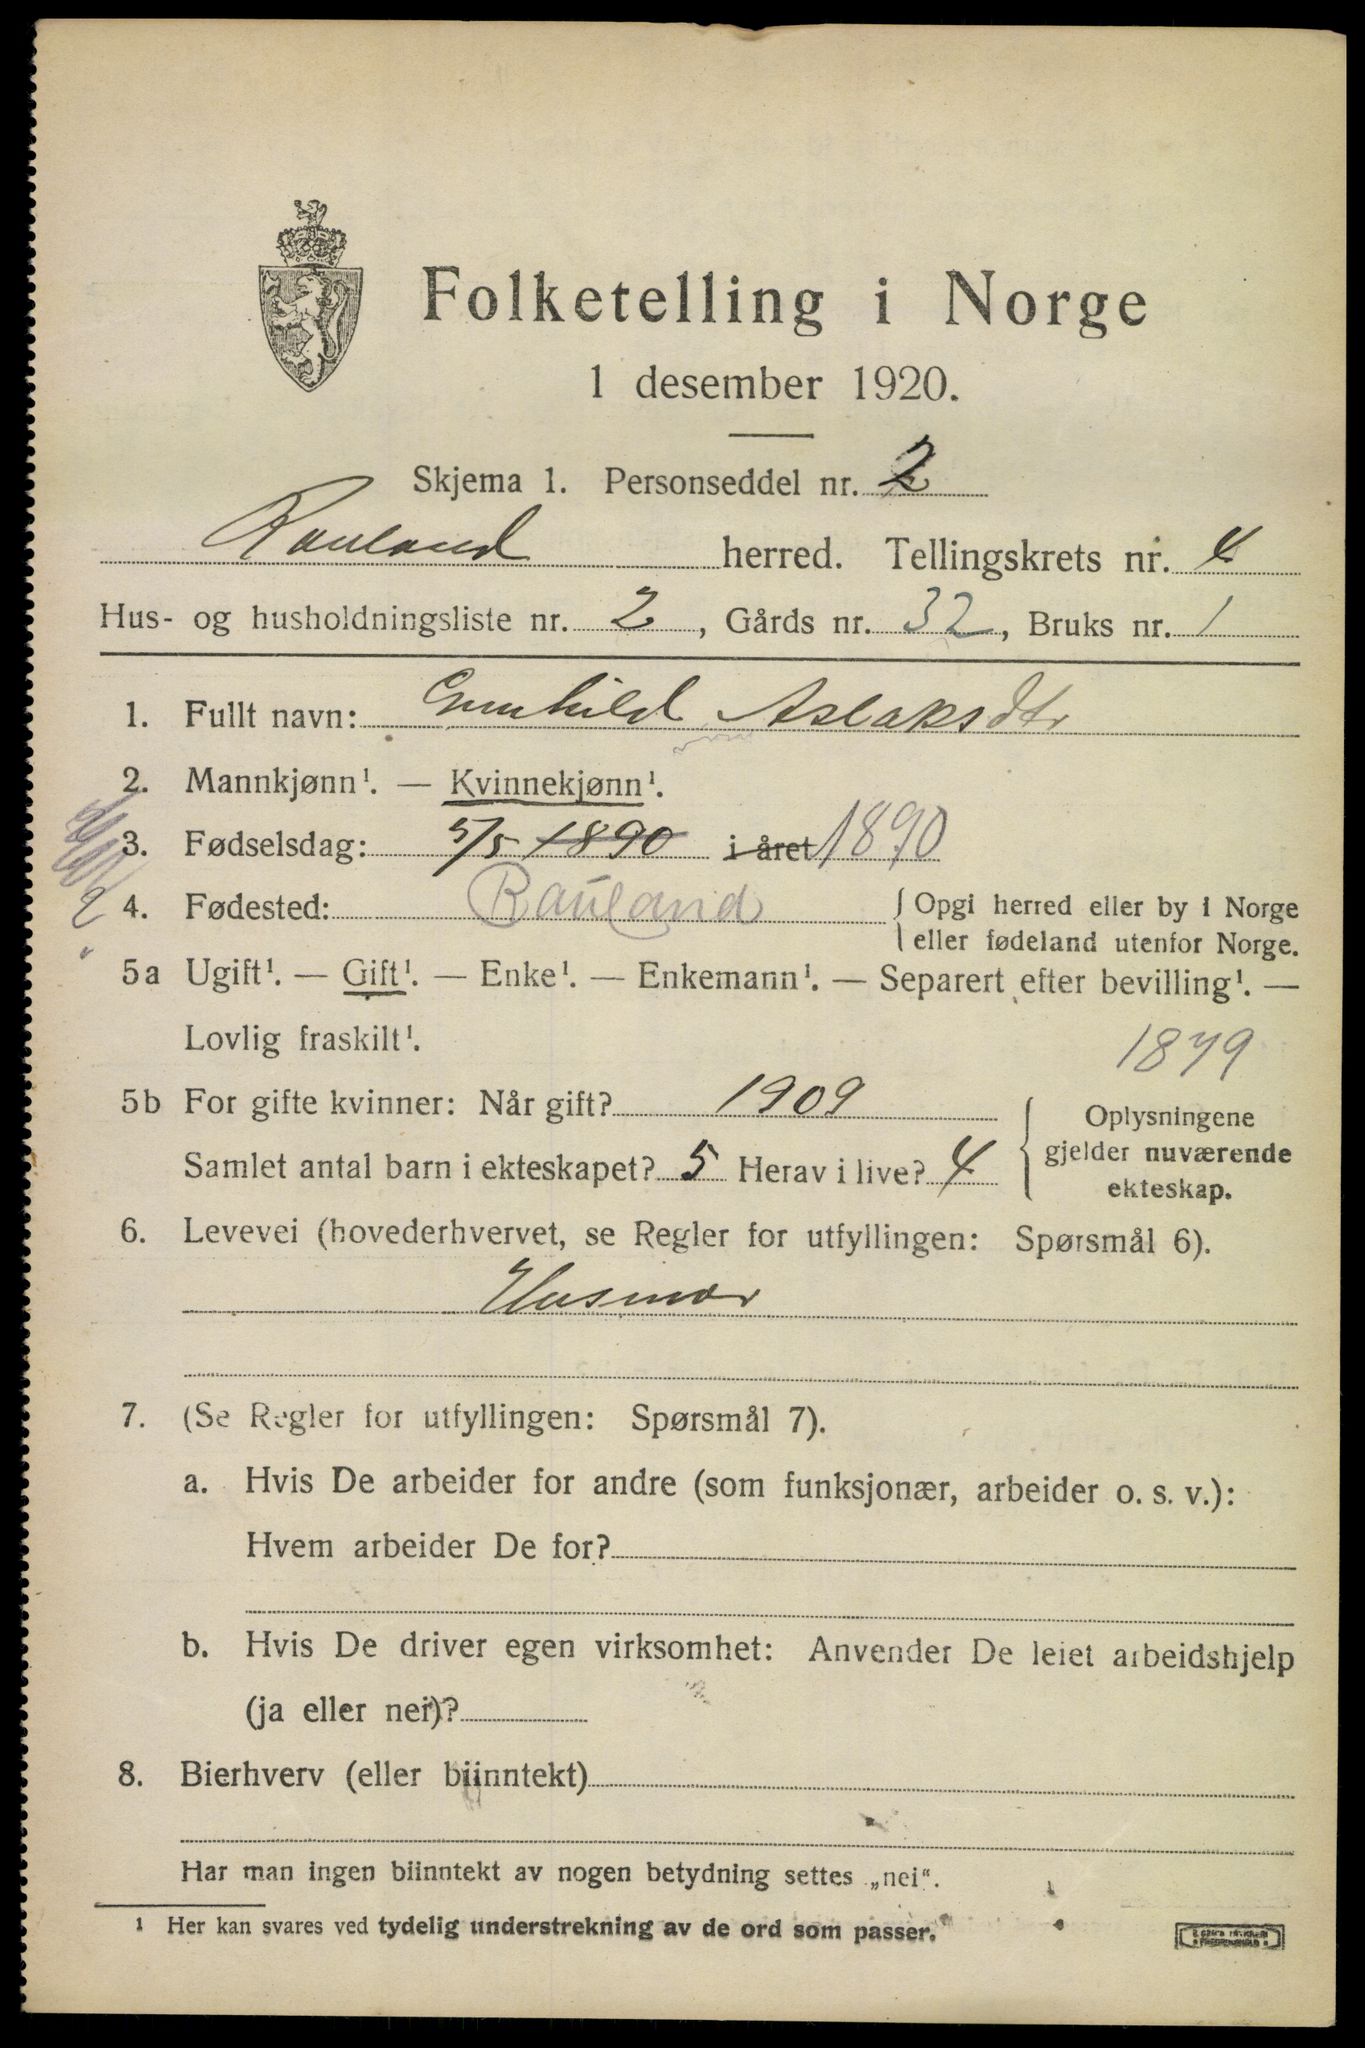 Folketelling i Norge
1 desember 1920.
Skjema 1. Personseddel nr. 2
Rauland herred. Tellingskrets nr. 4
Hus- og husholdningsliste nr. 2, Gårds nr. 32, Bruks nr. 1
1. Fullt navn: Gunhild Aslaksdtr
2. Mannkjønn¹. — Kvinnekjønn¹.
3. Fødselsdag: 5/5 1890 i året 1890
4. Fødested: Rauland { Opgi herred eller by i Norge
eller fødeland utenfor Norge.
5a Ugift¹. — Gift¹. — Enke¹. — Enkemann¹. — Separert efter bevilling¹. —
Lovlig fraskilt¹.
1879
5b For gifte kvinner: Når gift? 1909
Samlet antal barn i ekteskapet? 5 Herav i live? 4
Oplysningene
gjelder nuværende
ekteskap.
6. Levevei (hovederhvervet, se Regler for utfyllingen: Spørsmål 6).
Husmor
7. (Se Regler for utfyllingen: Spørsmål 7).
a. Hvis De arbeider for andre (som funksjonær, arbeider o. s. v.):
Hvem arbeider De for?
b. Hvis De driver egen virksomhet: Anvender De leiet arbeidshjelp
(ja eller nei)?
8. Bierhverv (eller biinntekt)
Har man ingen biinntekt av nogen betydning settes „nei“.
¹ Her kan svares ved tydelig understrekning av de ord som passer.